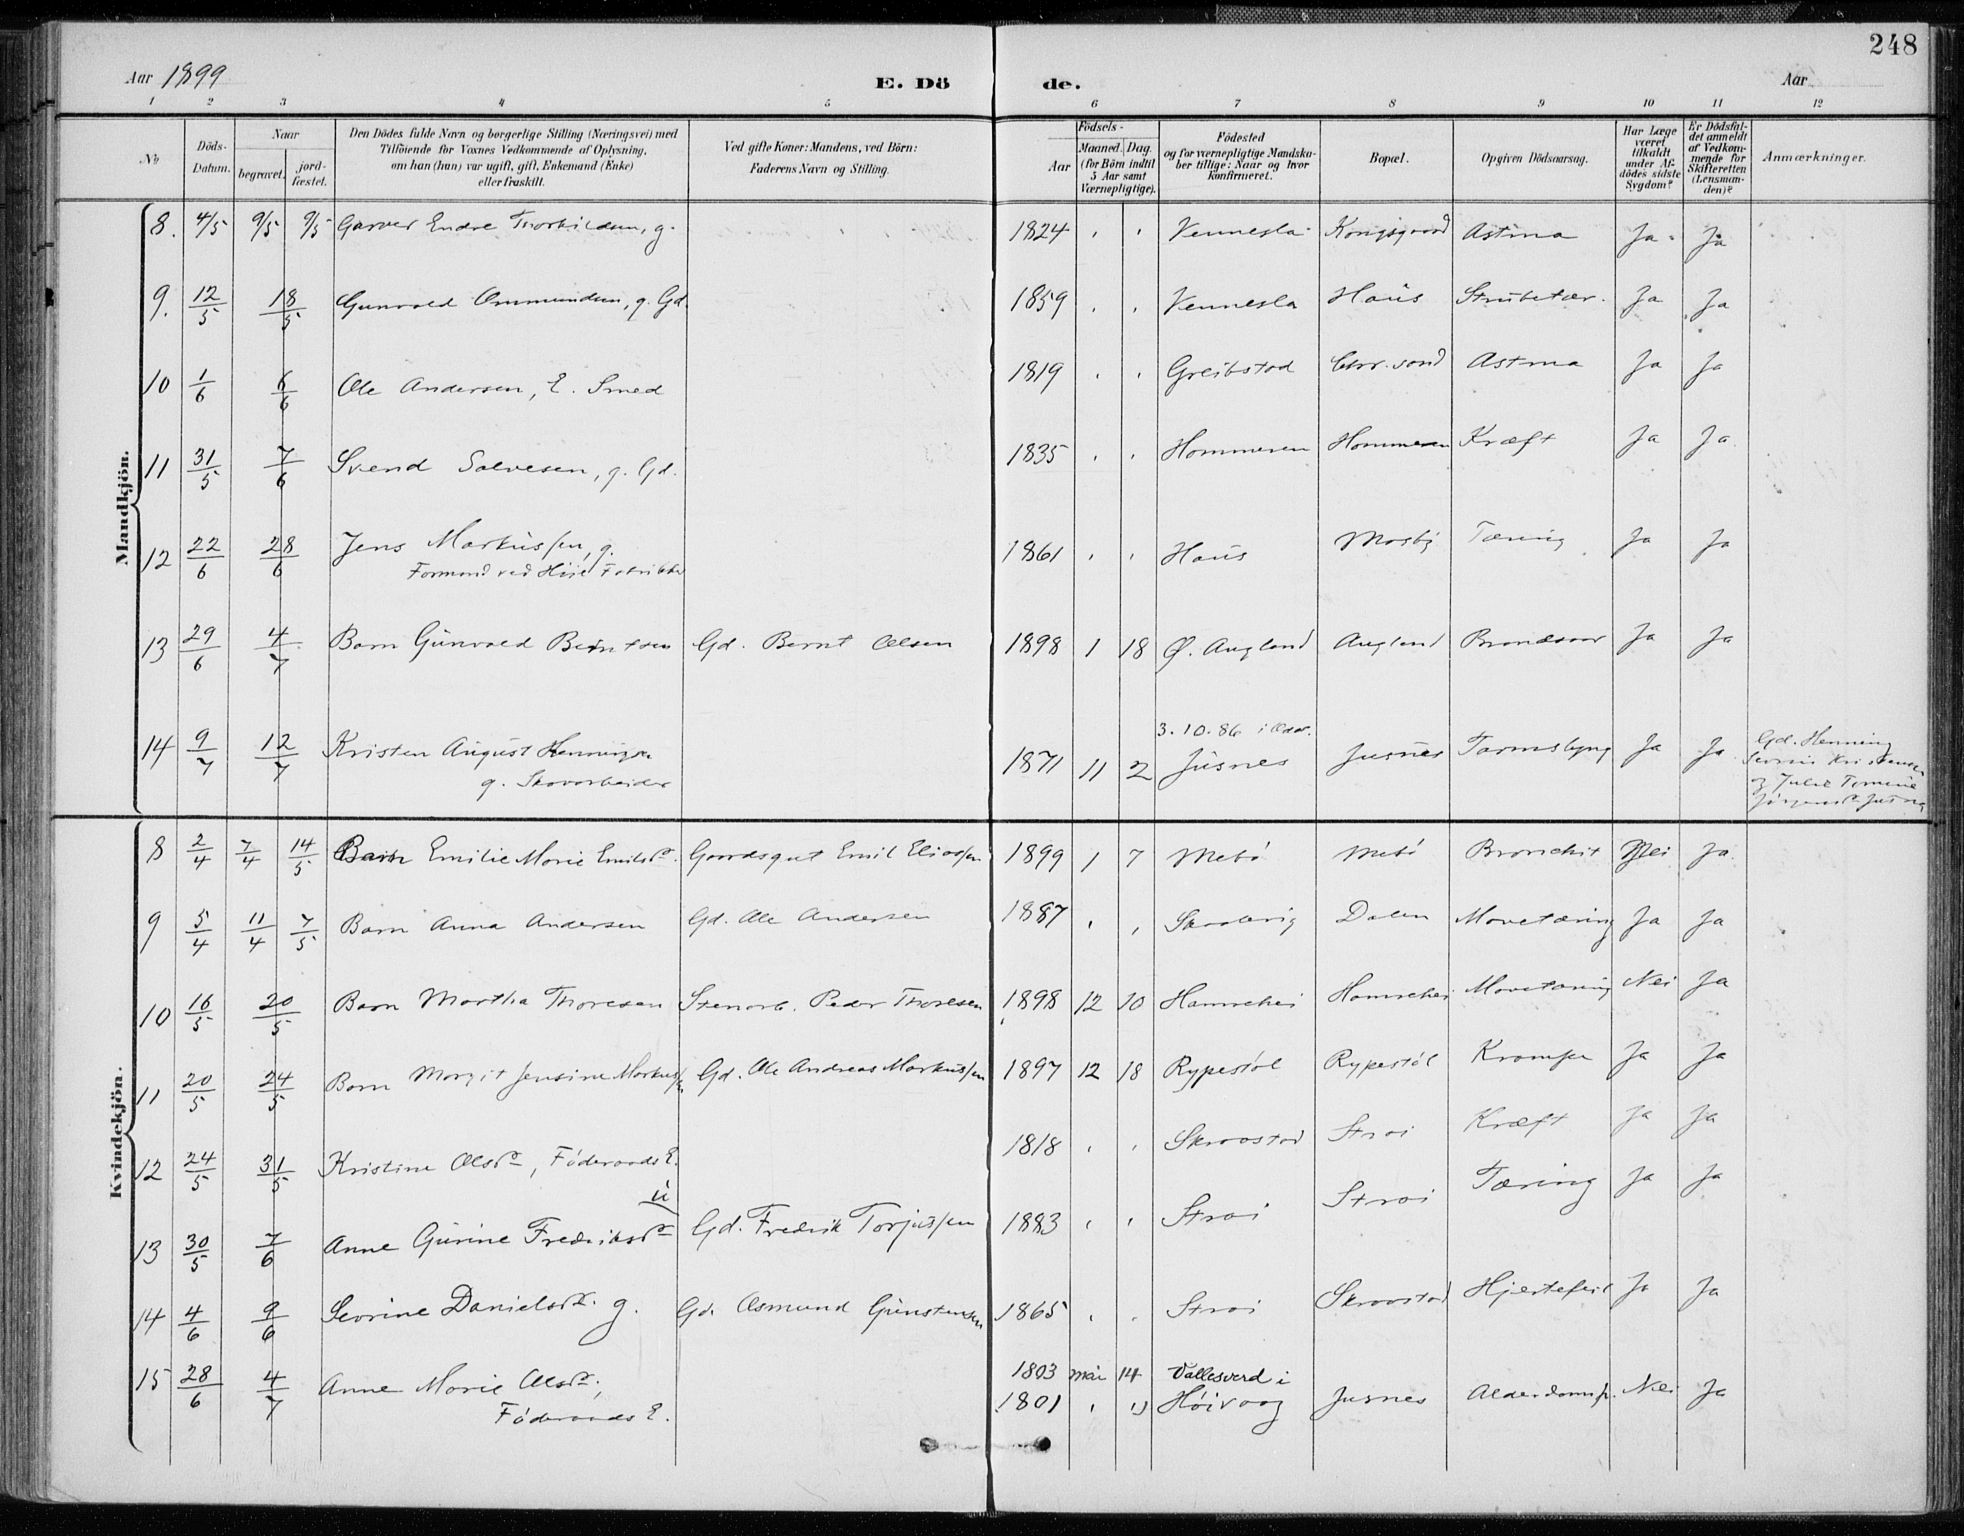 248
Aar 1899 E. Dö de. Aar
1 2 3 4 5 6 7 8 9 10 11 12
No
Döds-Datum.
Naar
begravet. jord-fæstet.
Den Dödes fulde Navn og borgerlige Stilling (Næringsvei) med
Tilföiende for Voxnes Vedkommende af Oplysning,
om han (hun) var ugift, gift, Enkemand (Enke)
eller fraskilt.
Ved gifte Koner: Mandens, ved Börn:
Faderens Navn og Stilling.
Födsels-
Aar Maaned. Dag.
(for Börn indtil
5 Aar samt
Værnepligtige).
Födested
og for værnepligtige Mandska-
ber tillige: Naar og hvor
konfirmeret.
Bopæl.
Opgiven Dödsaarsag.
Har Læge
været
tilkaldt
under Af-
dödes sidste
Sygdom?
Er Dödsfal-
det anmeldt
af Vedkom-
mende for
Skifteretten
(Lensman-
den)?
Anmærkninger.
Mandkjön.
8. 4/5 9/5 9/5 Garver Endre Thorkildsen, g. 1824 Vennesla Kongsgaard Astma Ja Ja
9. 12/5 18/5 Gunvald Ommundsen, g. Gd. 1859 Vennesla Haus Strubetær. Ja Ja
10 1/6 6/6 Ole Andersen, E. Smed 1819 Greibstad Chr.sand Astma Ja Ja
11 31/5 7/6 Svend Salvesen, g. Gd. 1835 Hommeren Hommeren Kræft Ja Ja
12 22/6 28/6 Jens Markussen, g. 1861 Haus Mosby Tæring Ja Ja
Formand ved Høie Fabrikker
13 29/6 4/7 Barn Gunvald Berntsen Gd. Bernt Olsen 1898 1 18 Ø. Augland Augland Brandsaar Ja Ja
3.10.86 i
14 9/7 12/7 Kristen August Hennings. 1871 11 2 Jusnes Jusnes Tarmslyng Ja Ja Gd. Henning
g. Skovarbeider
og Julie
Kvindekjön.
8 2/4 7/4 14/5 Barn Emilie Marie Emilsd. Gaardsgut Emil Eliassen 1899 1 7 Mebø Mebø Bronchit Nei Ja
9 5/4 11/4 7/5 Barn Anna Andersen Gd. Ole Andersen 1887 Dalen Mavetæring Ja Ja
10 16/5 20/5 Barn Martha Thoresen Stenarb. Peder Thoresen 1898 12 10 Hamrehei Hamrehei Mavetæring Nei Ja
11 20/5 24/5 Barn Margit Jensine Markussen Gd. Ole Andreas Markussen 1897 12 18 Rypestøl Rypestøl Krampe Ja Ja
12 24/5 31/5 Kristine Olsd., Føderaads E. 1818 Skraastad Strai Kræft Ja Ja
13 30/5 7/6 Anne Gurine Fredriksd. u Gd. Fredrik Torjussen 1883 Strai Strai Tæring Ja Ja
14 4/6 9/6 Sevrine Danielsd. g. Gd. Asmund Gunstensen 1865 Strai Skraastad Hjertefeil Ja Ja
15 28/6 4/7 Anne Marie Olsd., 1803 mai 14 Vallesverd i
Føderaads E. 1801 Høivaag Jusnes Alderdoms. Nei Ja